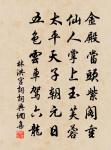 金殿當頭紫閣重
仙人掌上玉芙蓉
太平天子朝元日
五色雲車駕六龍
林洪宮詞詞典網書